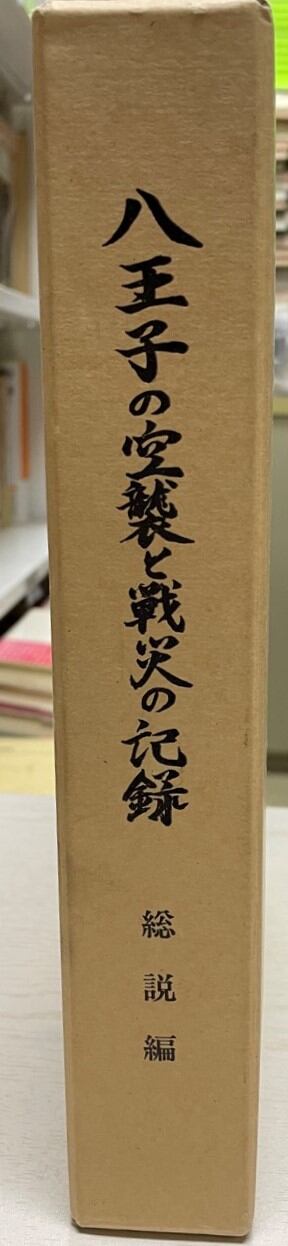 八王子の空襲と戦災の記録
総説編